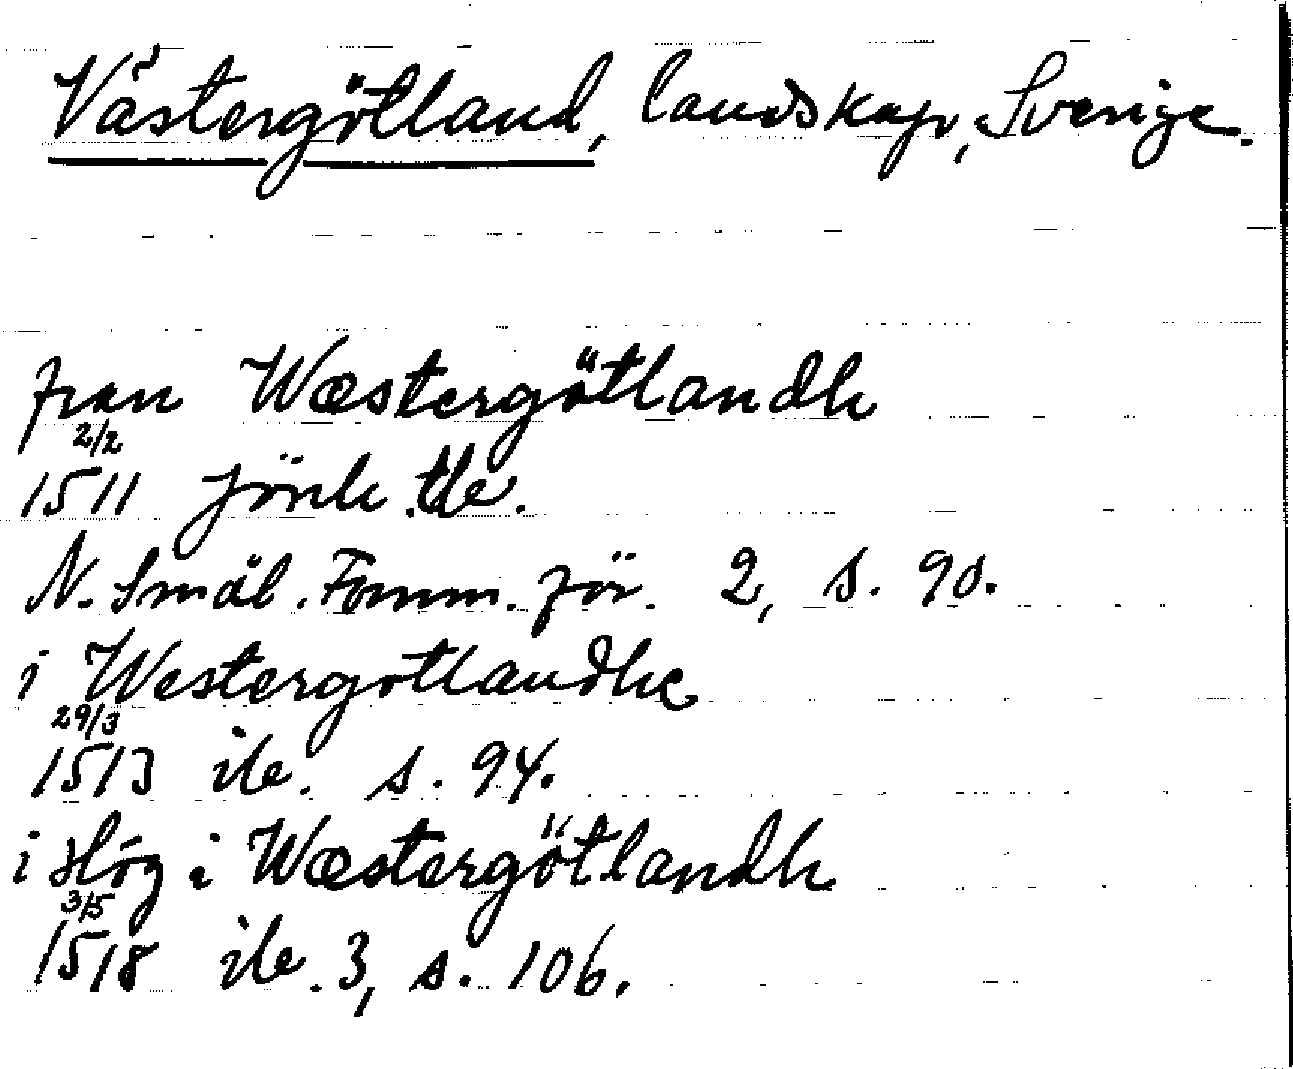 Västergötland, landskap, Sverige.
från Wæstergötlandh
2/2
1511 Jönk. tb.
N. Smål. Fornm. för. 2, s. 90.
i Westergotlandhe
29/3
1513 ib. s. 94.
i Hög i Wæstergötlandh
3/5
1518 ib. 3, s. 106.